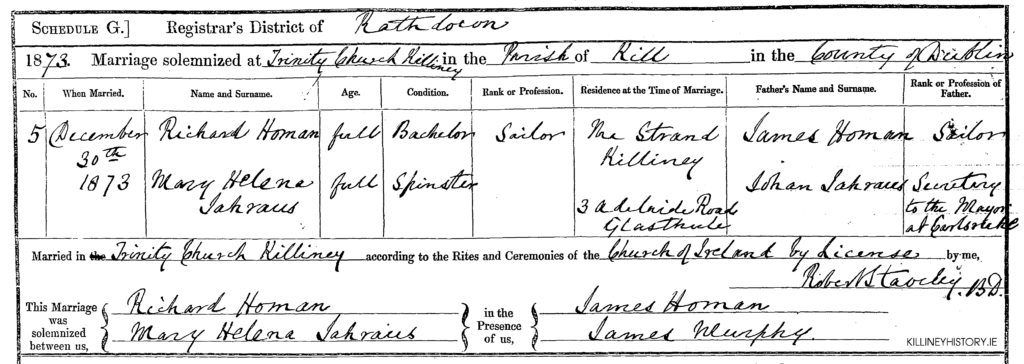 SCHEDULE G.] Registrar's District of Rathdown
1873. Marriage solemnized at Trinity Church Killiney in the Parish of Kill in the County of Dublin
No. When Married. Name and Surname. Age. Condition. Rank or Profession. Residence at the Time of Marriage. Father's Name and Surname. Rank or Profession of Father.
5 December Richard Homan full Bachelor Sailor The Strand James Homan Sailor
30th Killiney
1873 Mary Helena full Spinster Johan Jahraus Secretary
Jahraus 3 Adelaide Road to the Mayor
Glasthule at Carlsruhe
Married in the Trinity Church Killiney according to the Rites and Ceremonies of the Church of Ireland by License by me,
Robert Staveley, B.D.
This Marriage was solemnized between us, Richard Homan in the Presence of us, James Homan
Mary Helena Jahraus James Murphy
KILLINEYHISTORY.IE